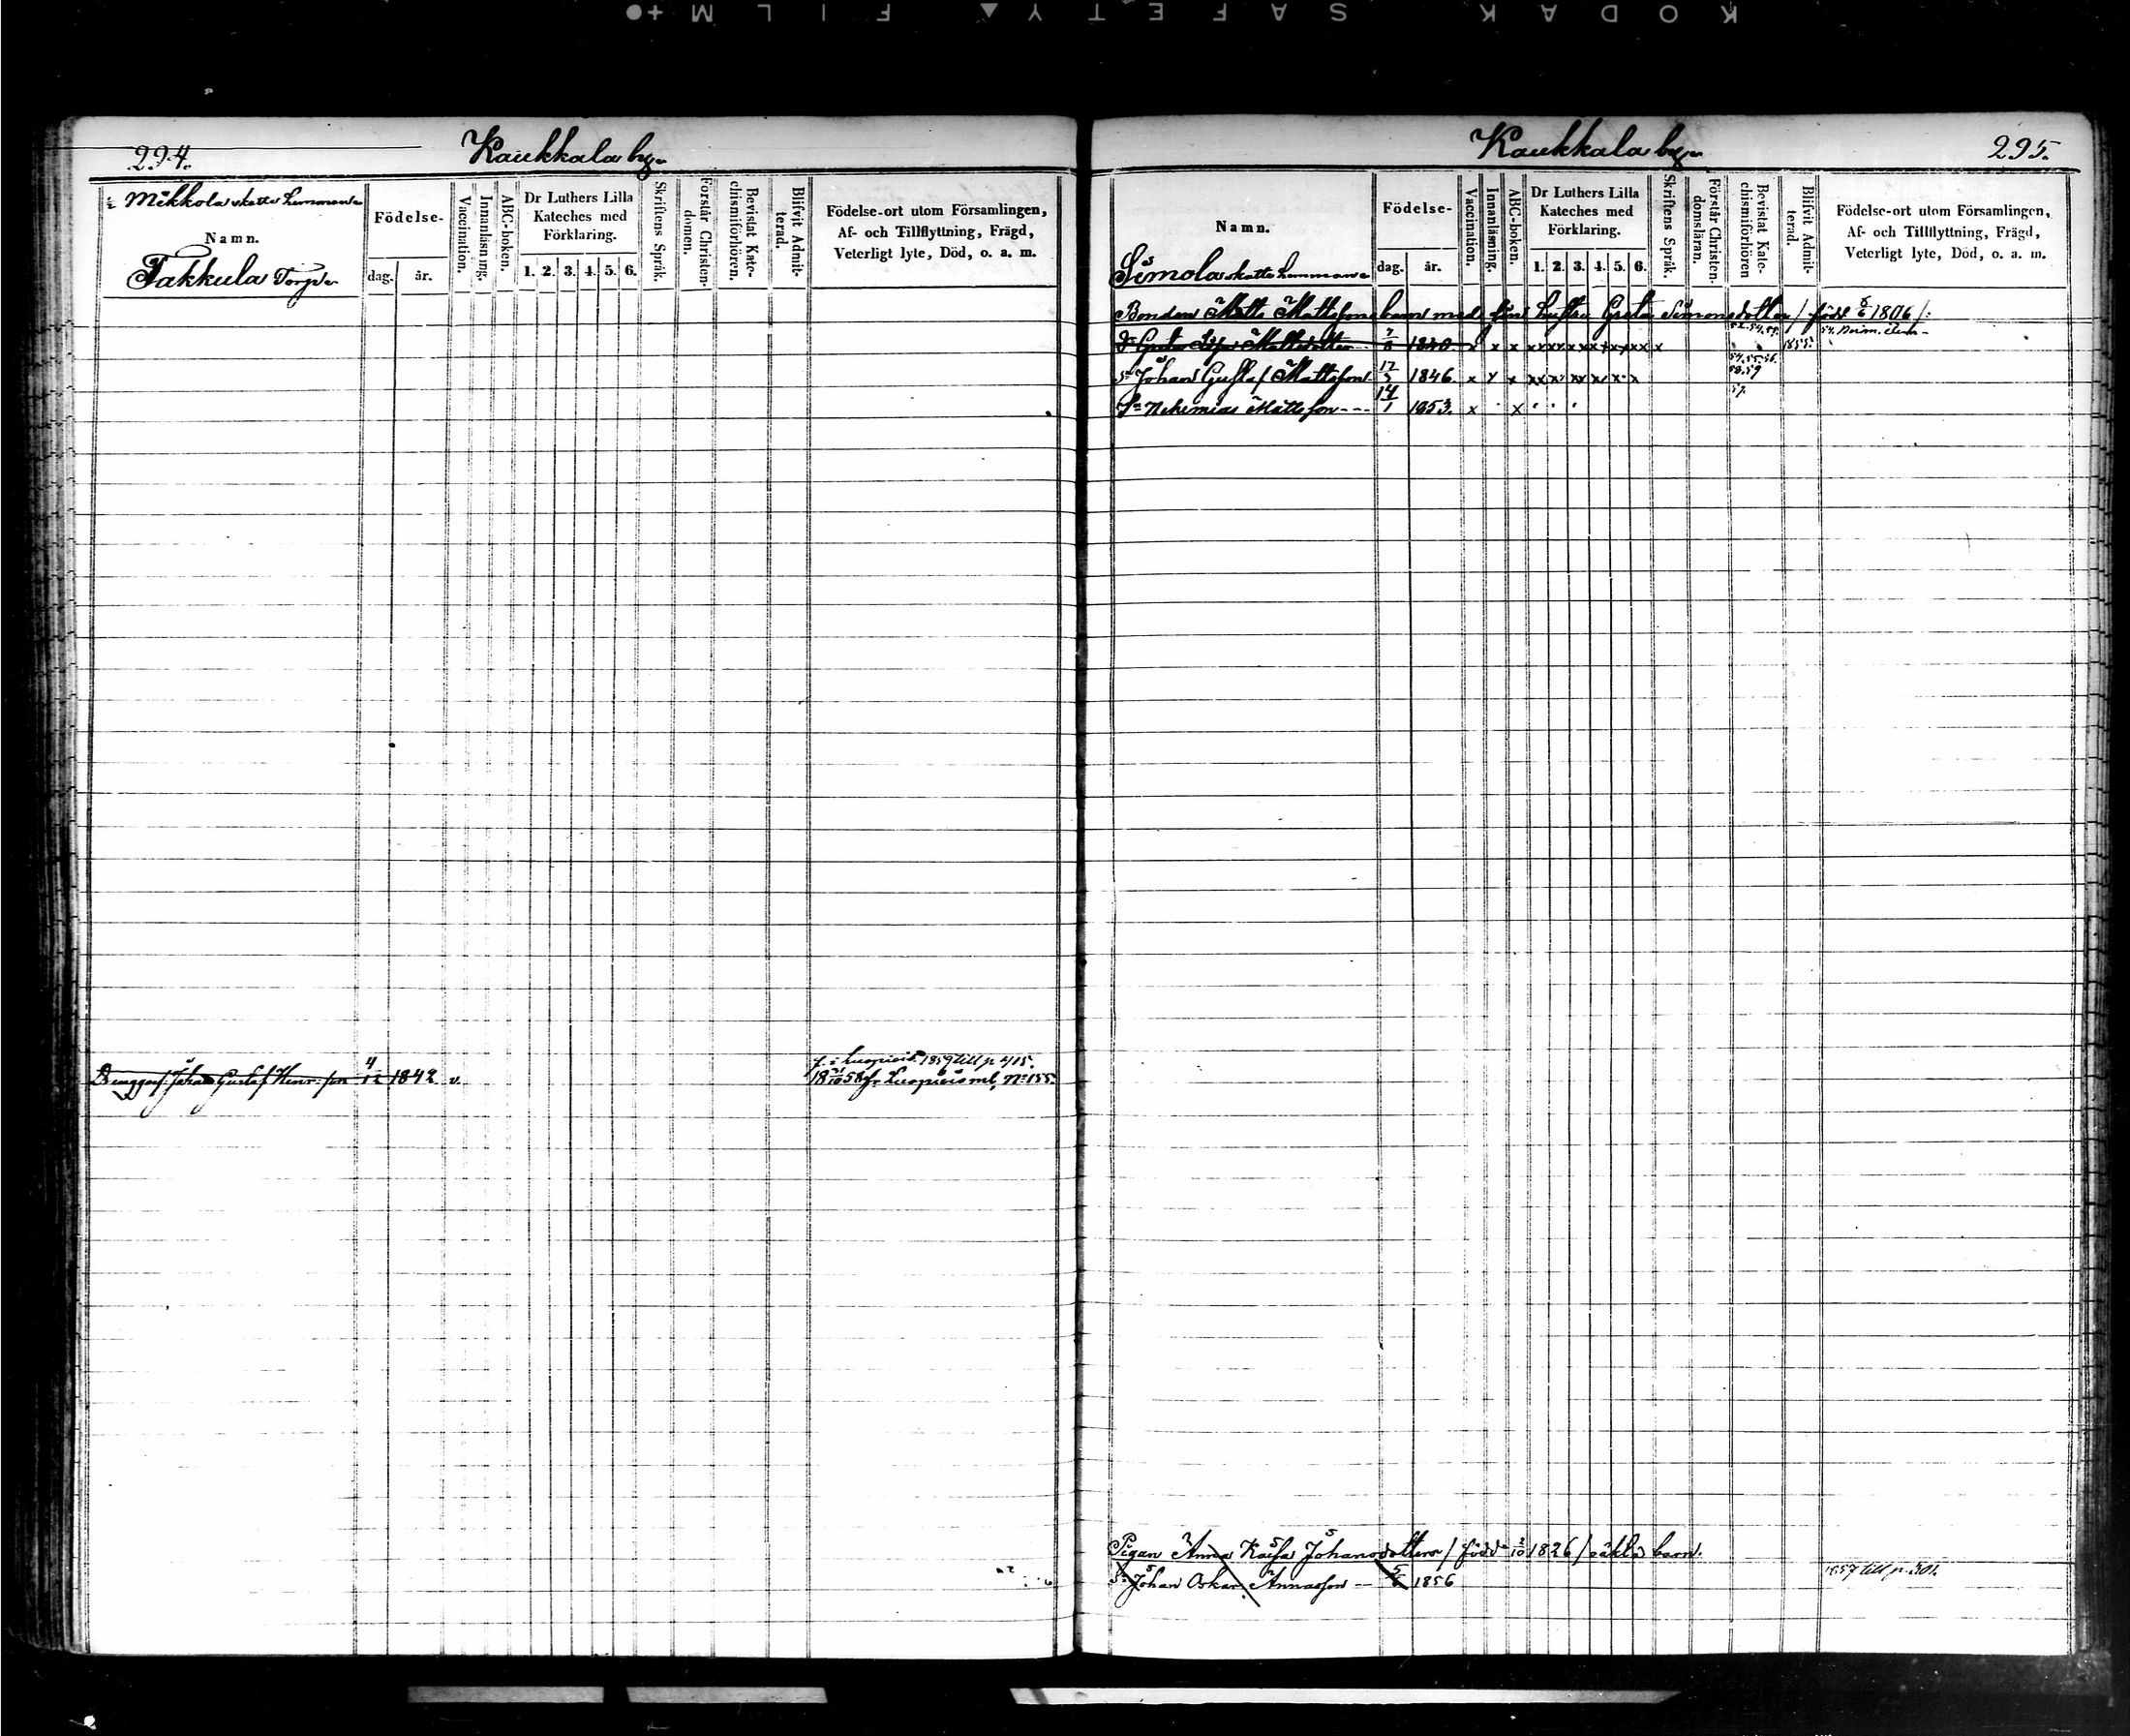 KODAK SAFETY FILM
294.
Kaukkala by.
Mikkola skatte hemman
Namn.
Takkula Torp
Födelse-
dag.
år.
Vaccination.
Innanläsning.
ABC-boken.
Dr Luthers Lilla
Kateches med
Förklaring.
1. 2. 3. 4. 5. 6.
Skriftens Språk.
Förstår Christen-
domen.
Bevistat Kate-
chismiförhören.
Blifvit Admit-
terad.
Födelse-ort utom Församlingen,
Af- och Tillflyttning, Frägd,
Veterligt lyte, Död, o. a. m.
f. i Luopiois. 1859 till p 415.
Drenggoss. Johan Gustaf Henr. son 4/12 1842 v. 18 58 fr. Luopiois ml, No 155.
Kaukkala by.
295.
Namn.
Simola skatte hemman
Födelse-
dag.
år.
Vaccination.
Innanläsning.
ABC-boken.
Dr Luthers Lilla
Kateches med
Förklaring.
1. 2. 3. 4. 5. 6.
Skriftens Språk.
Förstår Christen-
domsläran.
Bevistat Kate-
chismiförhören
Blifvit Admit-
terad.
Födelse-ort utom Församlingen,
Af- och Tillflyttning, Frägd,
Veterligt lyte, Död, o. a. m.
Bonden Matts Mattssons barn med sin hustru Greta Simonsdotter / född 5/6 1806 /.
Dr Greta Lisa Mattsdotter 1840. x x x x x x x x x x x x x 1855.
Sn Johan Gustaf Mattsson 17/5 1846. x x x x x x x x x 54. 55. 56. 58. 59
Sn Nehemias Mattsson --- 14/1 1853. x x 59.
Pigan Anna Kaisa Johansdotters / född 3/10 1826 / oäkta barn.
Sn Johan Oskar Annasson -- 5/6 1856 1857 till p. 301.